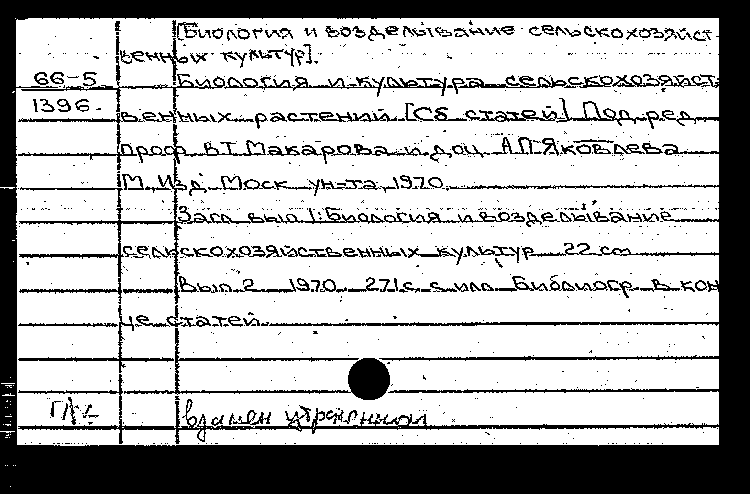 [Биология и возделывание сельскохозяйст-
венных культур].
66-5 Биология и культура сельскохозяйст-
1396. венных растений [Сб статей] Под ред
проф В.Т Макарова и доц А.П.Яковлева
М, Изд Моск ун-та, 1970
Загл вып 1: Биология и возделывание
сельскохозяйственных культур 22 cm
Вып 2 1970 271 с с илл Библиогр в кон
це статей
взамен утраченной